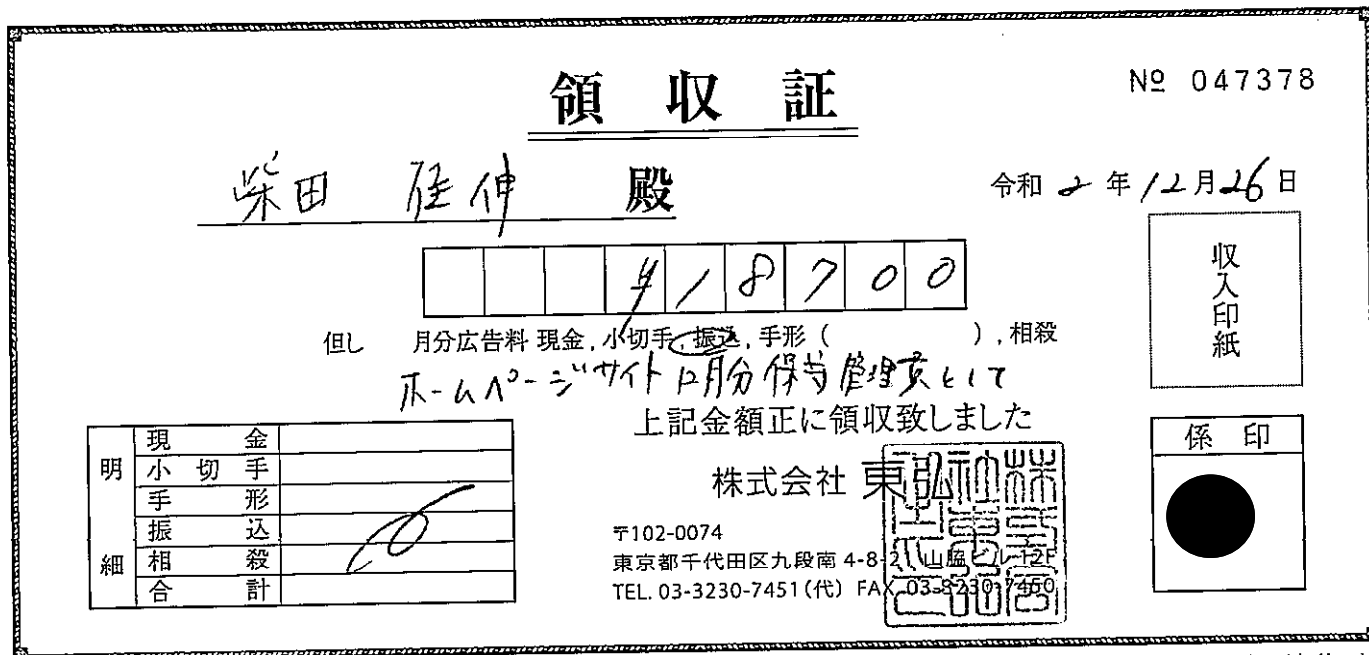 領収証
№ 047378
柴田 雅伸 殿
令和 2 年 12 月 26 日
¥18700
収入印紙
但し 月分広告料 現金, 小切手, 振込, 手形 ( ), 相殺
ホームページサイト12月分保守管理費として
上記金額正に領収致しました
係印
明細
現金
小切手
手形
振込
相殺
合計
株式会社 東弘
〒102-0074
東京都千代田区九段南 4-8-2 山脇ビル12F
TEL. 03-3230-7451(代) FAX. 03-3230-7460